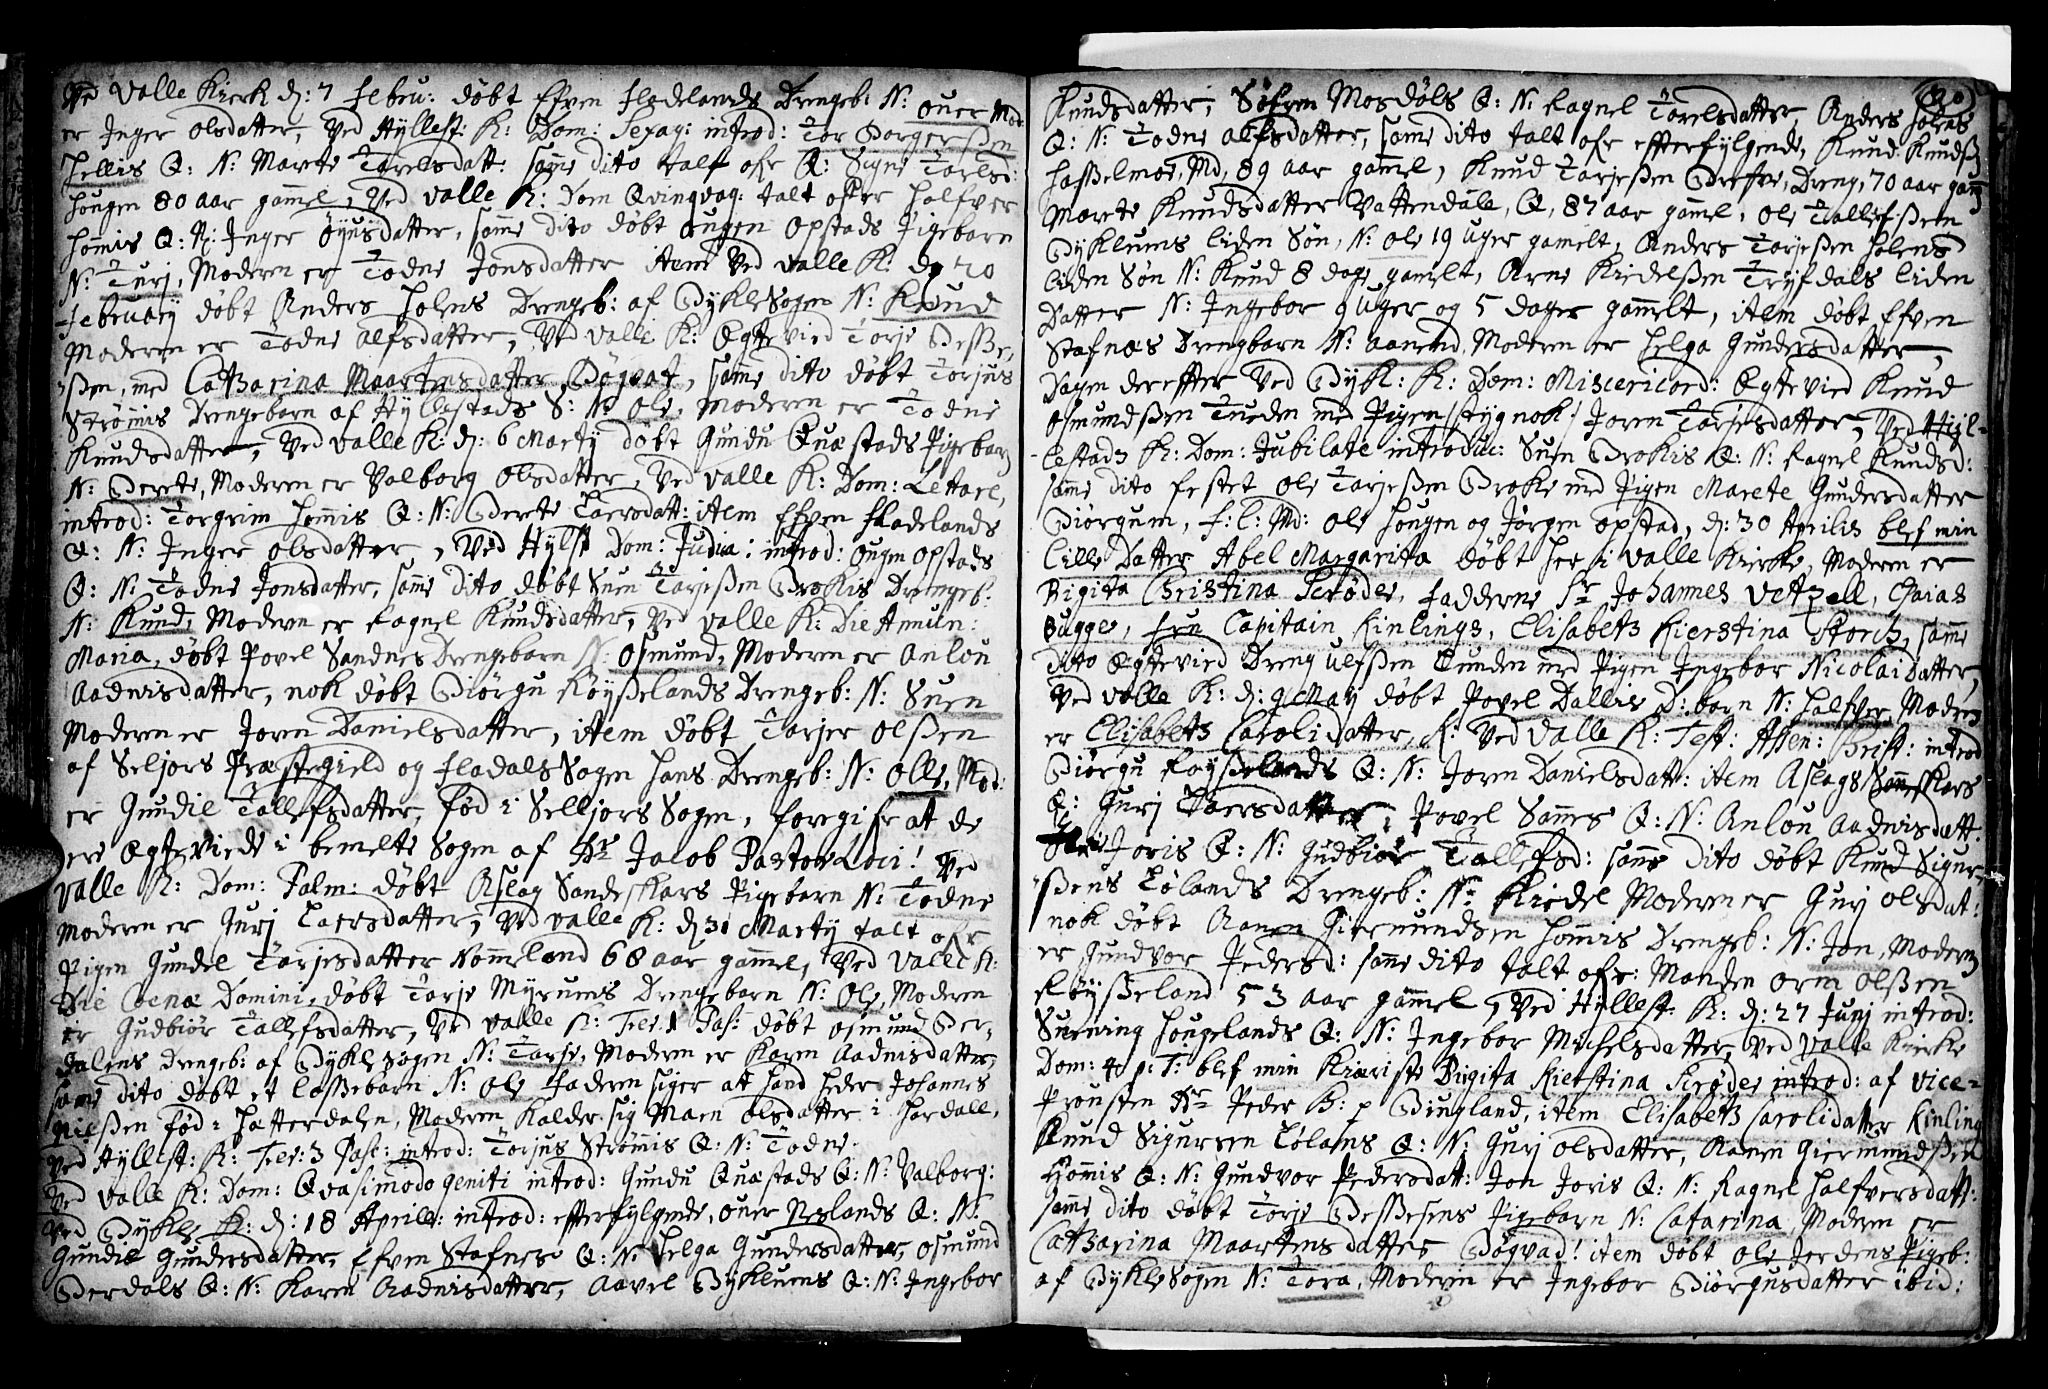 Ved Valle Kierk d: 7 Febru: døbt Efven Fladelands Drengeb: N: Ouer Mod
er Inger Olsdatter, Ved Hyllest: K: Dom: Sexag: introd: Tor Torgerssen
Hellis Q: N: Marete Tarelsdatt: samme dito talt ofr Q: Signe Tarlsd:
Hougen 80 aar gammel, Ved Valle K: Dom Qvinqvag: talt ofver Halfver
Hommis Q: N: Inger Øyusdatter, samme dito døbt Ougen Opstads Pigebarn
N: Turj, Moderen er Todne Jonsdatter Item Ved Valle K: d: 20
February døbt Anders Holens Drengeb: af Bykle Sogen N: Knud
Moderen er Todne Alfsdatter, Ved Valle K: Egtevied Torje Besse,
ssen, med Catharina Maartensdatter Bøgvat, samme dito døbt Torjus
Strømmis Drengebarn af Hyllestads S: N: Ole, Moderen er Todne
Knudsdatter, Ved Valle K: d: 6 Marty døbt Gundu Quæstads Pigebarn
N: Berete, Moderen er Valborg Olsdatter, Ved Valle K: Dom: Letare,
introd: Torgrim Hommis Q: N: Berte Taersdatt: item Efven Fladelands
Q: N: Inger Olsdatter, Ved Hylst: Dom: Judica: introd: Ougen Opstads
Q: N: Todne Jonsdatter, samme dito døbt Suen Tarjessen Brokis Drengeb:
N: Knud, Moderen er Ragnel Knudsdatter, Ved Valle K: Die Anuntn:
Maria, døbt Povel Sandnes Drengebarn N: Osmund, Moderen er Anlou
Aadnisdatter, nok døbt Biørgu Røysselands Drengeb: N: Suen
Moderen er Joren Danielsdatter, item døbt Tarjer Olssen
af Seljors Præstegield og Fladals Sogen hans Drengeb: N: Olle, Mod:
er Gundil Tallefsdatter, fød i Selljors Sogen, foregifr at de
ere Egteviede i bemelte Sogen af Hr Jacob Pastor Loci! Ved
Valle K: Dom: Palm: døbt Aslag Sandeskars Pigebarn N: Todne
Moderen er Gurj Taersdatter, Ved Valle K: d: 31 Marty talt ofr
Pigen Gundel Tarjesdatter Nommeland 68 aar gammel, Ved Valle K:
Die Coenæ Domini, døbt Tarje Myrums Drengebarn N: Ole, Moderen
er Gudbiør Tallefsdatter, Ved Valle K: Fer: 1 Pas: døbt Osmund Ber,
dalens Drengeb: af Bykle Sogen N: Tarje, Moderen er Karen Aadnisdatter,
samme dito døbt et Løssebarn N: Ole Faderen siger at hand heder Johannes
Nielssen fød i Hatterdalen, Moderen kalder sig Maren Olsdatter i Hardall,
Ved Hyllest: K: Fer: 3 Pasc: introd: Torjus Strømis Q: N: Todne.
Ved Valle K: Dom: Qvasimodogeniti introd: Gundu Quæstads Q: N: Valborg:
Ved Bykle K: d: 18 Aprill: introd: effterfylgende, Ouer Neslands Q: N:
Gundil Gundersdatter, Efven Stafnes Q: N: Helga Gundersdatter, Osmund
Berdals Q: N: Karen Aadnisdatter, Aavel Byklums Q: N: Ingebor
20
Knudsdatter, Søfren Mosdøls Q: N: Ragnel Tarelsdatter, Anders Holens
Q: N: Todne Alfsdatter, samme dito talt ofr effterfylgende, Knud Knuds:
Hasselmoe, Md, 89 aar gammel, Knud Tarjessen Breive, Dreng, 70 aar gam:
Marete Knudsdatter Vattendale, Q, 87 aar gammel, Ole Tallefssen
Byklums liden Søn, N: Ole 19 Uger gamelt, Anders Tarjessen Holens
liden Søn N: Knud 8 dage gamelt, Arne Kiedelssen Trydals liden
Datter N: Ingebor 9 Uger og 5 dager gammelt, item døbt Efven
Stafnæs Drengbarn N: Aanend, Moderen er Helga Gundersdatter,
Dagen dereffter Ved Bykl: K: Dom: Misericord: Egtevied Knud
Osmundssen Tueden med Pigen /: styg nok :/ Joren Tarjesdatter, Ved Hyl-
lestads K: Dom: Jubilate introduc: Suen Brokis Q: N: Ragnel Knudsd:
samme dito festet Ole Tarjessen Broke med Pigen Marete Gundersdatter
Biørgum, F: L: Md: Ole Hougen og Jørgen Opstad, d: 30 Aprilis blef min
lille Datter Abel Margarita døbt her i Valle Kircke, Moderen er
Birgita Christina Schrøder, Fadderne Sr Johannes Vetzell, Esaias
Bugge, Fru Capitain Kinlings, Elisabeth Kierstina Storch, samme
dito Egtevied Dreng Ulfssen Lunden med Pigen Ingebor Nicolaidatter,
Ved Valle K: d: 9 May døbt Povel Dallis D: barn N: Halfver Moderen
er Elisabeth Carolidatter, Ved Valle K: Fest: Assen: Christ: introd
Biørgu Røysselands Q: N: Joren Danielsdatt: item Aslags Sanneskars
Q: Gurj Taersdatter, Povel Sannes Q: N: Anlou Aadnisdatt:
Joris Q: N: Gudbiør Tallefsd: samme dito døbt Knud Sigur,
ssens Løllands Drengeb: N: Kiedel Moderen er Gurj Olsdat:
nok døbt Aanen Giermundsen Hommis Drengeb: N: Jon, Moderen
er Gundvor Pedersd: samme dito talt ofr: Manden Orm Olssen
Røysseland 53 aar gammel, Ved Hyllest: K: d: 27 Junj introd:
Suening Hougelands Q: N: Ingebor Michelsdatter, Ved Valle Kircke
Dom: 4 p: T: blef min Kiæriste Birgita Kierstina Scrøder introd: af Vice-
Prousten Hr Peder H: p Biugland, item Elisabeth Carolidatter Kinling
Knud Sigursen Løllans Q: N: Gurj Olsdatter, Aanen Giermundssen
Hommis Q: N: Gundvor Pedersdatt: Jon Joris Q: N: Ragnel Halfversdatt:
samme dito døbt Torje Bessesens Pigebarn N: Catarina, Moderen er
Catharina Maartensdatter Bøgvad! item døbt Ole Jordens Pigeb:
af Bykle Sogen N: Tora, Moderen er Ingebor Biørgusdatter ibid: